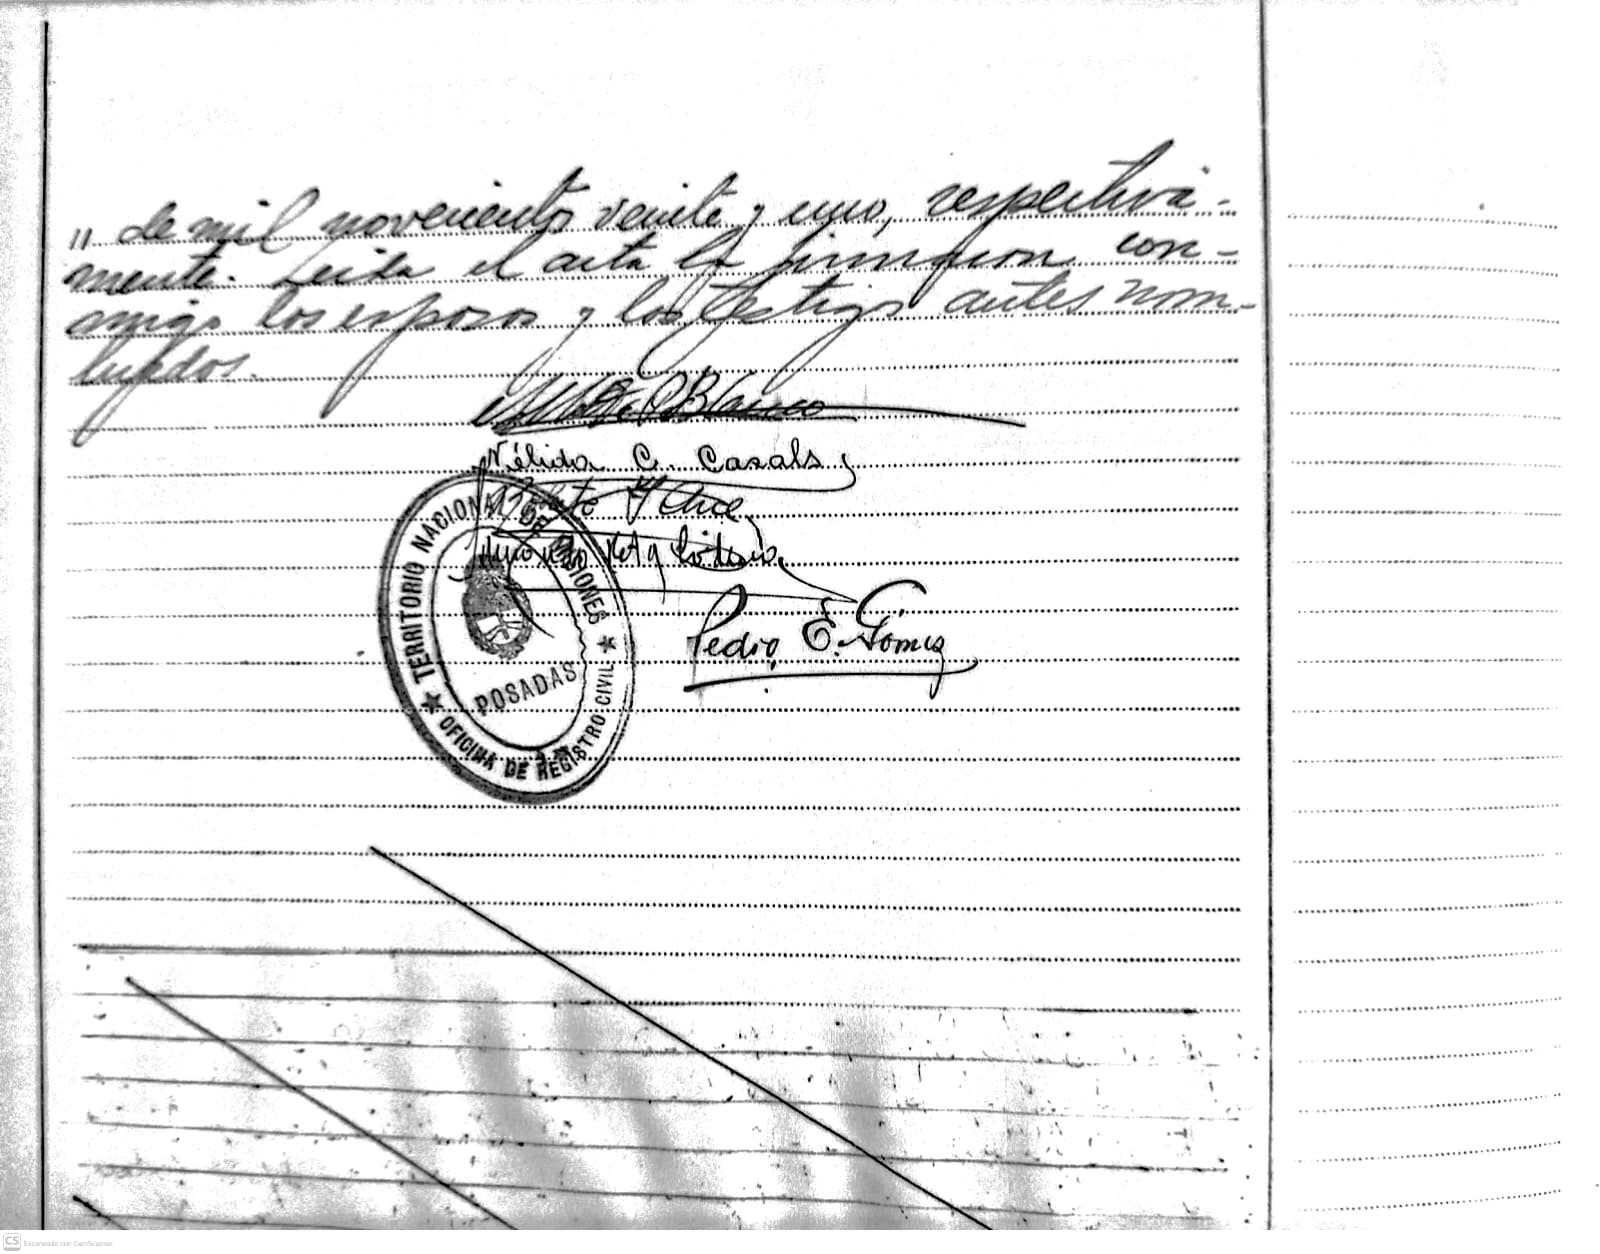 " de mil novecientos veinte y uno, respectiva-
mente. Leida el acta la firmaron con-
migo los esposos y los testigos antes nom-
brados.
Blanco
Nélida C. Casals
Pedro E. Gómez
★ TERRITORIO NACIONAL DE MISIONES ★
POSADAS
OFICINA DE REGISTRO CIVIL
CS Escaneado con CamScanner